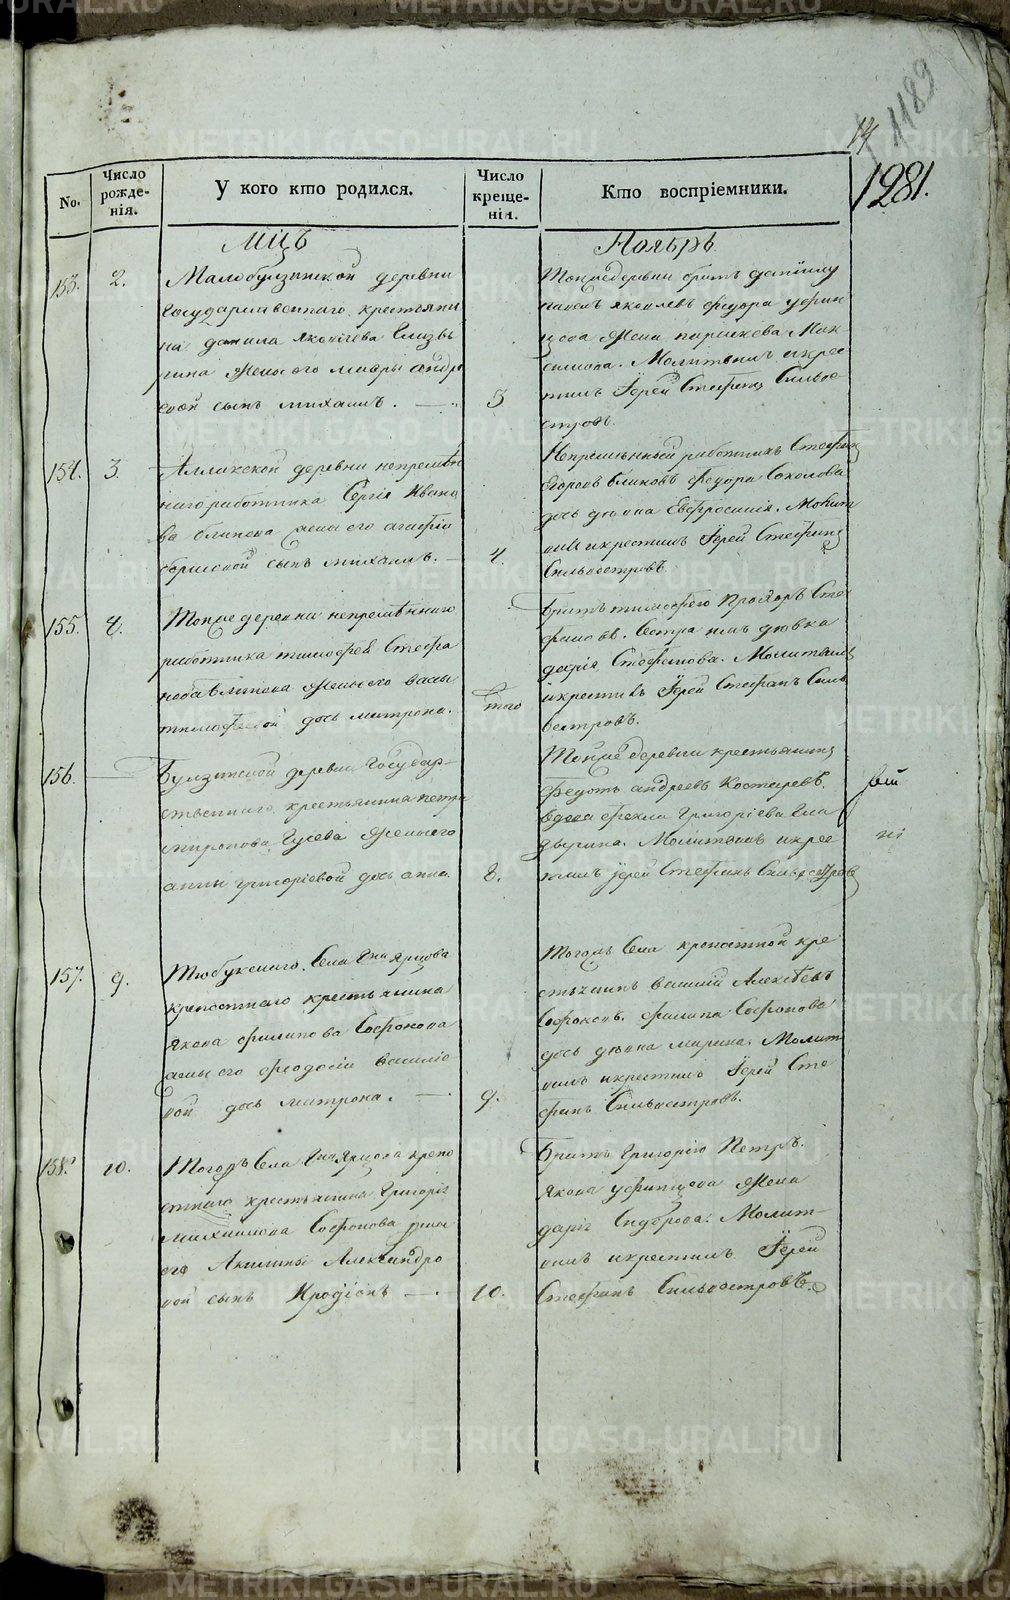 1189
14
1281.
No.
Число рожде-нія.
У кого кто родился.
Число креще-нія.
Кто воспріемники.
Мцъ
Ноябрь
153.
2.
Малобулзинской деревни
государственнаго крестьяни
на данила Яковлева Глазы
рина жены его мавры андре
евой сынъ михаилъ.
3
Тойже деревни братъ данилу
павелъ яковлевъ федора уфин
цова жена парасковья Мак
симова. Молитвилъ икрес
тилъ Іерей Стефанъ Сильве
стровъ.
154.
3.
Аллакской деревни непремѣн
наго работника Сергія Ивано
ва блинова жены его агафіи
борисовой сынъ михаилъ.
4.
Непремѣнный работникъ Стефанъ
Егоровъ блиновъ Федора Соколова
дочь дѣвка Евфросинія. Молит
вилъ икрестилъ Іерей Стефанъ
Сильвестровъ.
155.
4.
Тойже деревни непремѣннаго
работника тимофея Стефа
нова блинова жены его вассы
тимофеевой дочь матрона.
того
Братъ тимофею Прохоръ Сте
фановъ. Сестра имъ дѣвка
дарія Стефанова. Молитвилъ
икрестилъ Іерей Стефанъ Силь
вестровъ.
156.
Булзинской деревни Государ-
ственнаго крестьянина петра
миронова Гусева жены его
анны григоріевой дочь анна.
8.
Тойже деревни крестьянинъ
Федотъ андреевъ Костаревъ.
Вдова фекла Григоріева Гла
зырина. Молитвилъ икрес
тилъ іерей Стефанъ Сильвестровъ
157.
9.
Тюбукскаго Села Гна
крепостнаго крестьянина
Якова филипова Софонова
жены его феодосіи василіе
вой дочь матрона.
9.
Тогожъ Села крепостной кре
стьянинъ василій Алексѣевъ
Софоновъ. филипа Софонова
дочь дѣвка марина. Молит
вилъ икрестилъ Іерей Сте
фанъ Сильвестровъ.
158.
10.
Тогожъ Села Гна крепо
стнаго крестьянина Григорія
михаилова Софонова жены
его Акилины Александро
вой сынъ Иродіонъ
10.
Братъ Григорію Петръ.
Якова уфинцова жена
дарія Сидорова. Молит-
вилъ икрестилъ Іерей
Стефанъ Сильвестровъ.
METRIKI.GASO-URAL.RU